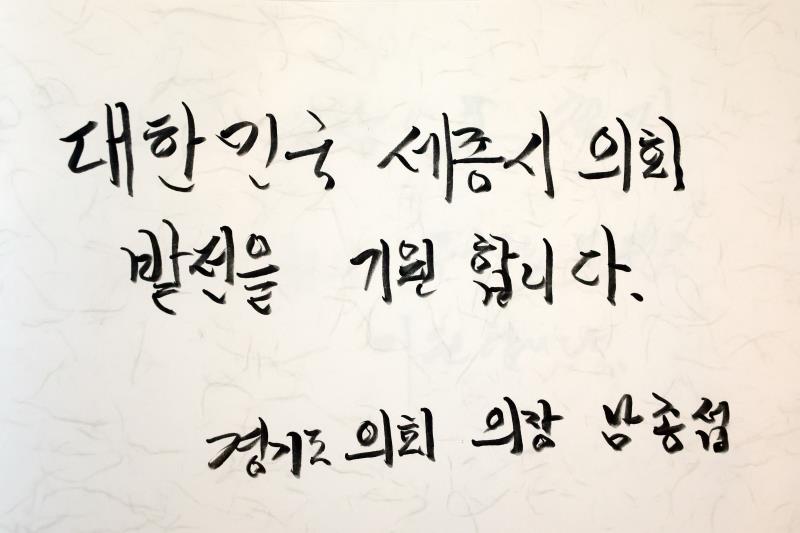 대한민국 세종시 의회
발전을 기원 합니다.
경기도 의회 의장 남종섭